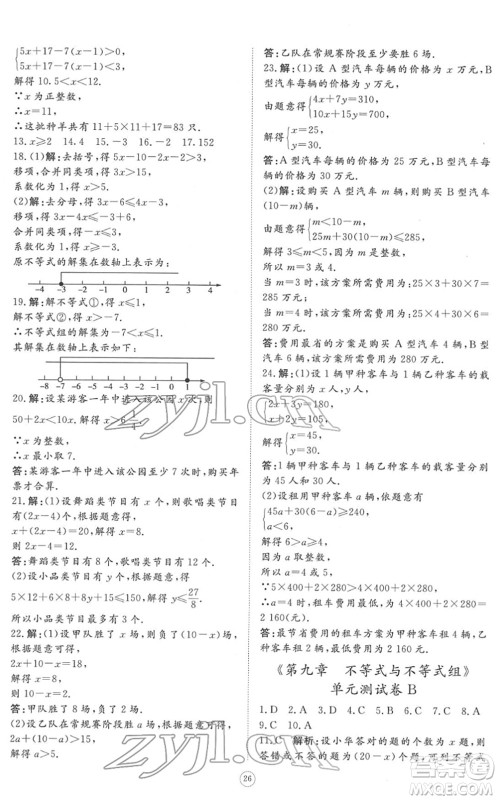 5x+17-7(x-1)>0,
5x+17-7(x-1)<3,
解得 10.5<x<12.
∵x=为正整数,
∴x=11,
∴这批种羊共有 11+5×11+17=83 只.
13.x≥2 14.4 15.-2 16.-2 17.152
18.(1)去括号,得 5x-15-2x>0,
移项,合并同类项,得 3x>15,
系数化为 1,得 x>5.
(2)去分母,得 3x-6≤4x-3,
移项,得 3x-4x≤-3+6,
合并同类项,得-x≤3,
系数化为 1,得 x≥-3.
原不等式的解集在数轴上表示为:
-4 -3 -2 -1 0 1 2 3 4
19.解:解不等式①,得 x≤1,
解不等式②,得 x>-7.
∴不等式组的解集为-7<x≤1.
其解集在数轴上表示为:
-8 -7 -6 -5 -4 -3 -2 -1 0 1 2
20.解:设某游客一年中进入该公园 x 次,则
50+2x<10x. 解得 x>6 1/4
∵x 为正整数,
∴x 最小取 7.
答:某游客一年中进入该公园至少 7 次时,购买年
票才合算.
21.解:(1)设舞蹈类节目有 x 个,则歌唱类节目有
(2x-4)个,根据题意可得,
x+2x-4=10×2,解得 x=8,
所以 2x-4=12.
答:舞蹈类节目有 8 个,歌唱类节目有 12 个.
(2)设小品类节目有 a 个,根据题意,得
5×12+6×8+8a+15≤150,解得 a≤27/8
所以小品类节目最多有 3 个.
22.解:(1)设甲队胜了 x 场,则负了(10-x)场,
根据题意可得,
2x+10-x=18,
解得 x=8,
则 10-x=2,
答:甲队胜了 8 场,则负了 2 场.
(2)设乙队在常规赛阶段胜 a 场,根据题意可得,
2a+(10-a)>15,
解得 a>5,
答:乙队在常规赛阶段至少要胜 6 场.
23.解:(1)设 A 型汽车每辆的价格为 x 万元,B
型汽车每辆的价格为 y 万元,
由题意得
4x+7y=310,
10x+15y=700,
解得
x=25,
y=30.
答:A 型汽车每辆的价格为 25 万元,B 型汽车每
辆的价格为 30 万元.
(2)设购买 A 型汽车 m 辆,则购买 B 型汽车
(10-m)辆,
由题意得
m<10-m,
25m+30(10-m)≤285.
解得 3≤m<5,
因为 m 是整数,
所以 m=3 或 4,
当 m=3 时,该方案所需费用为:25×3+30×7=
285(万元);
当 m=4 时,该方案所需费用为:25×4+30×6=
280(万元).
答:费用最省的方案是购买 A 型汽车 4 辆,B 型
汽车 6 辆,该方案所需费用为 280 万元.
24.解:(1)设 1 辆甲种客车与 1 辆乙种客车的载
客量分别为 x 人,y 人.
答:1 辆甲种客车与 1 辆乙种客车的载客量分别
为 45 人和 30 人.
(2)设租用甲种客车 a 辆,依题意有
45a+30(6-a)≥240,
a<6,
解得 6>a≥4,
因为 a 取整数,
所以 a=4 或 5,
∵5×400+1×280>4×400+2×280,
∴a=4 时,租车费用最低,为 4×400+2×280=
2 160.
答:最节省费用的租车方案为租用甲种客车 4
辆,乙种客车 2 辆,最低费用为 2 160 元.
《第九章 不等式与不等式组》
单元测试卷 B
1.D 2.A 3.D 4.D 5.D 6.B 7.C 8.D
9.C 10.A
11.C 解析:设小华答对的题的个数为 x 题,则
答错或不答的题的个数为(20-x)题,可列不等式
26
zyjl.cn
zyjl.cn
zyjl.cn